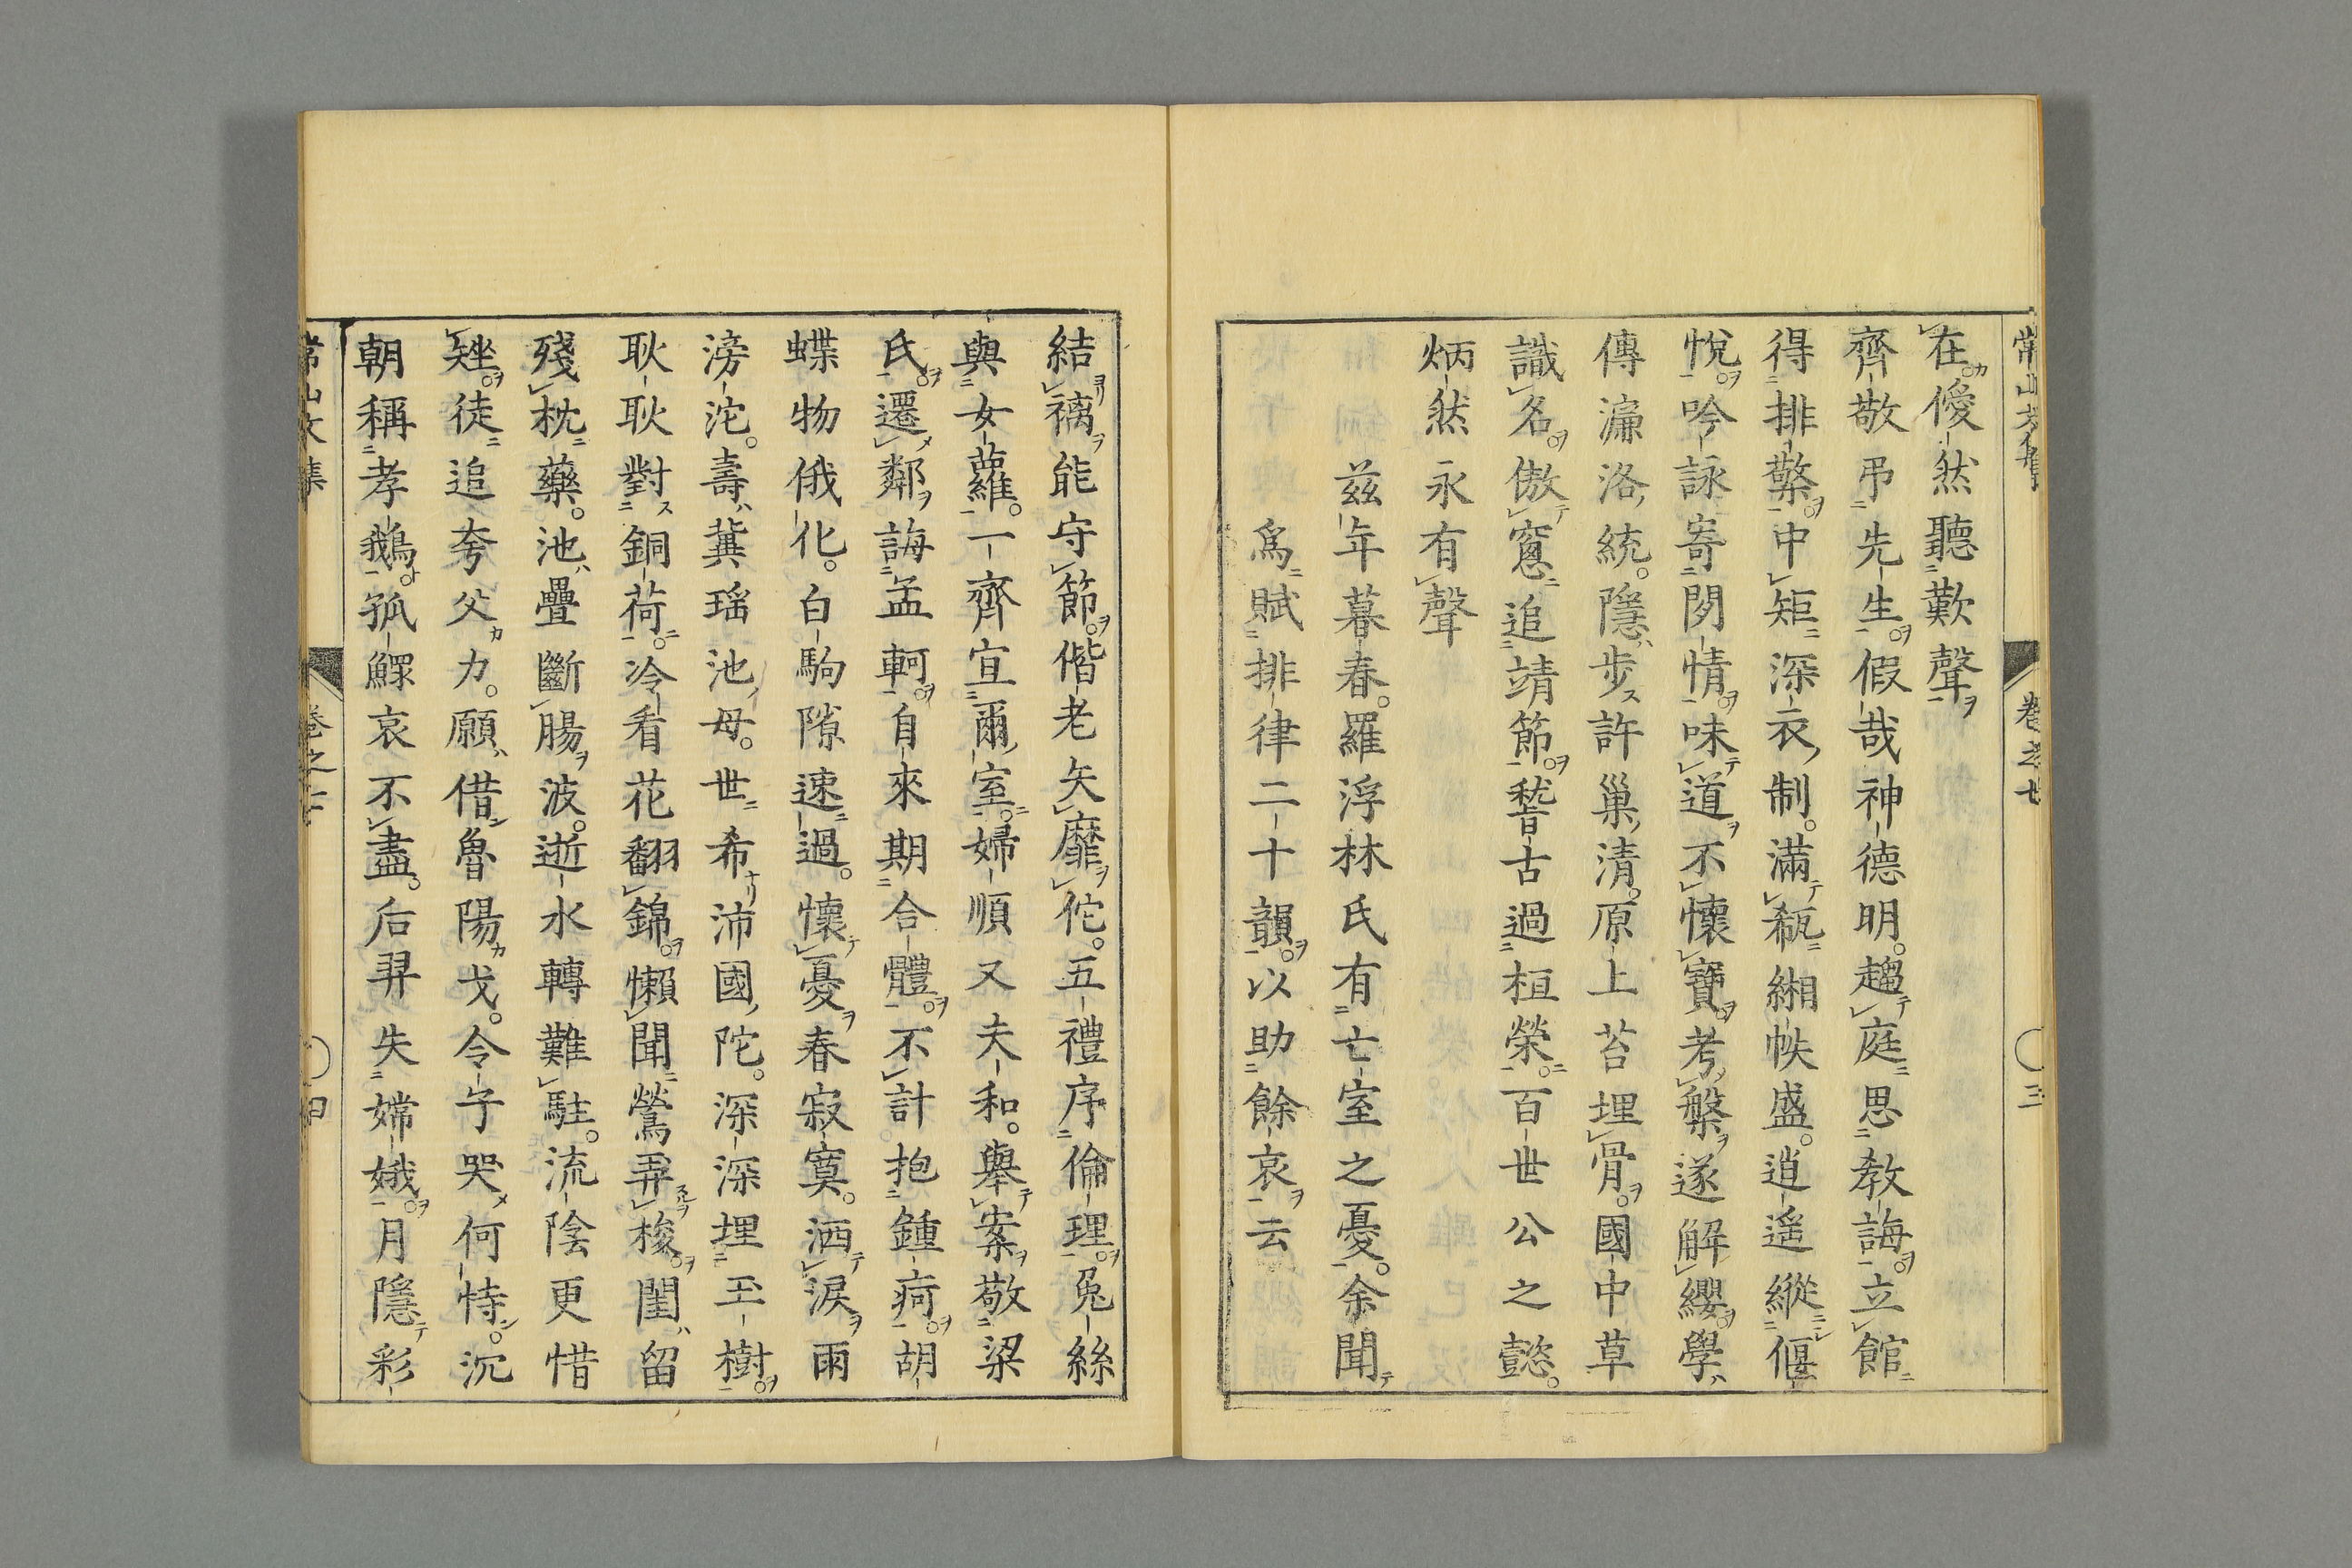 常山文集 卷之七 三
在僾然聽歎聲
齊敬弔先生假哉神德明趨庭思教誨立館
得排檠中矩深衣制滿瓻緗帙盛逍遙縱偃
悅吟詠寄閑情味道不懷寶考槃遂解纓學
傳濂洛統隱步許巢清原上苔埋骨國中草
識名傲窻追靖節稽古過桓榮百世公之懿
炳然永有聲
茲年暮春羅浮林氏有亡室之憂余聞
爲賦排律二十韻以助餘哀云
結褵能守節偕老矢靡佗五禮序倫理兔絲
與女蘿一齊宜爾室婦順又夫和舉案敬梁
氏遷鄰誨孟軻自來期合體不計抱鍾痾胡
蝶物俄化白駒隙速過懷憂春寂寞洒淚雨
滂沱壽冀瑶池母世希沛國陀深深埋玉樹
耿耿對銅荷冷看花翻錦懶聞鶯弄梭閨留
殘枕藥池疊斷腸波逝水轉難駐流陰更惜
矬徒追夸父力願借魯陽戈令子哭何恃沉
朝稱孝鵝孤鰥哀不盡后羿失嫦娥月隱彩
常山文集 卷之七 四